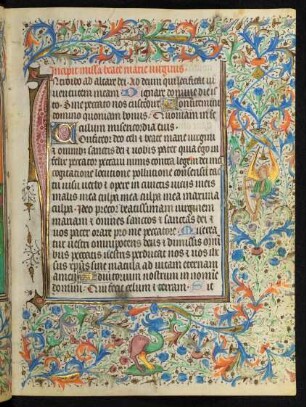 Incipit missa beate marie virginis
Introibo ad altare dei. Ad deum qui letificat iu
uentutem meam. Dignare domine die is
to. Sine peccato nos custodire Confitemini
domino quoniam bonus. Quoniam in se
culum misericordia eius.
Confiteor deo celi et beate marie virgini
et omnibus sanctis dei et vobis pater quia ego in
felix peccator peccaui nimis contra legem dei mei
cogitacione locutione pollutione consensu tac
tu visu verbo et opere in cunctis viciis meis
malis mea culpa mea culpa mea maxima
culpa. Ideo precor beatissimam virginem
mariam et omnes sanctos et sanctas dei et
vos pater orare pro me peccatore. Misereatur
vestri omnipotens deus et dimissis omni
bus peccatis vestris perducat nos et vos ih
sus xpus sine macula ad vitam eternam
amen. Adiutorium nostrum in nomine
domini. Qui fecit celum et terram. Sit